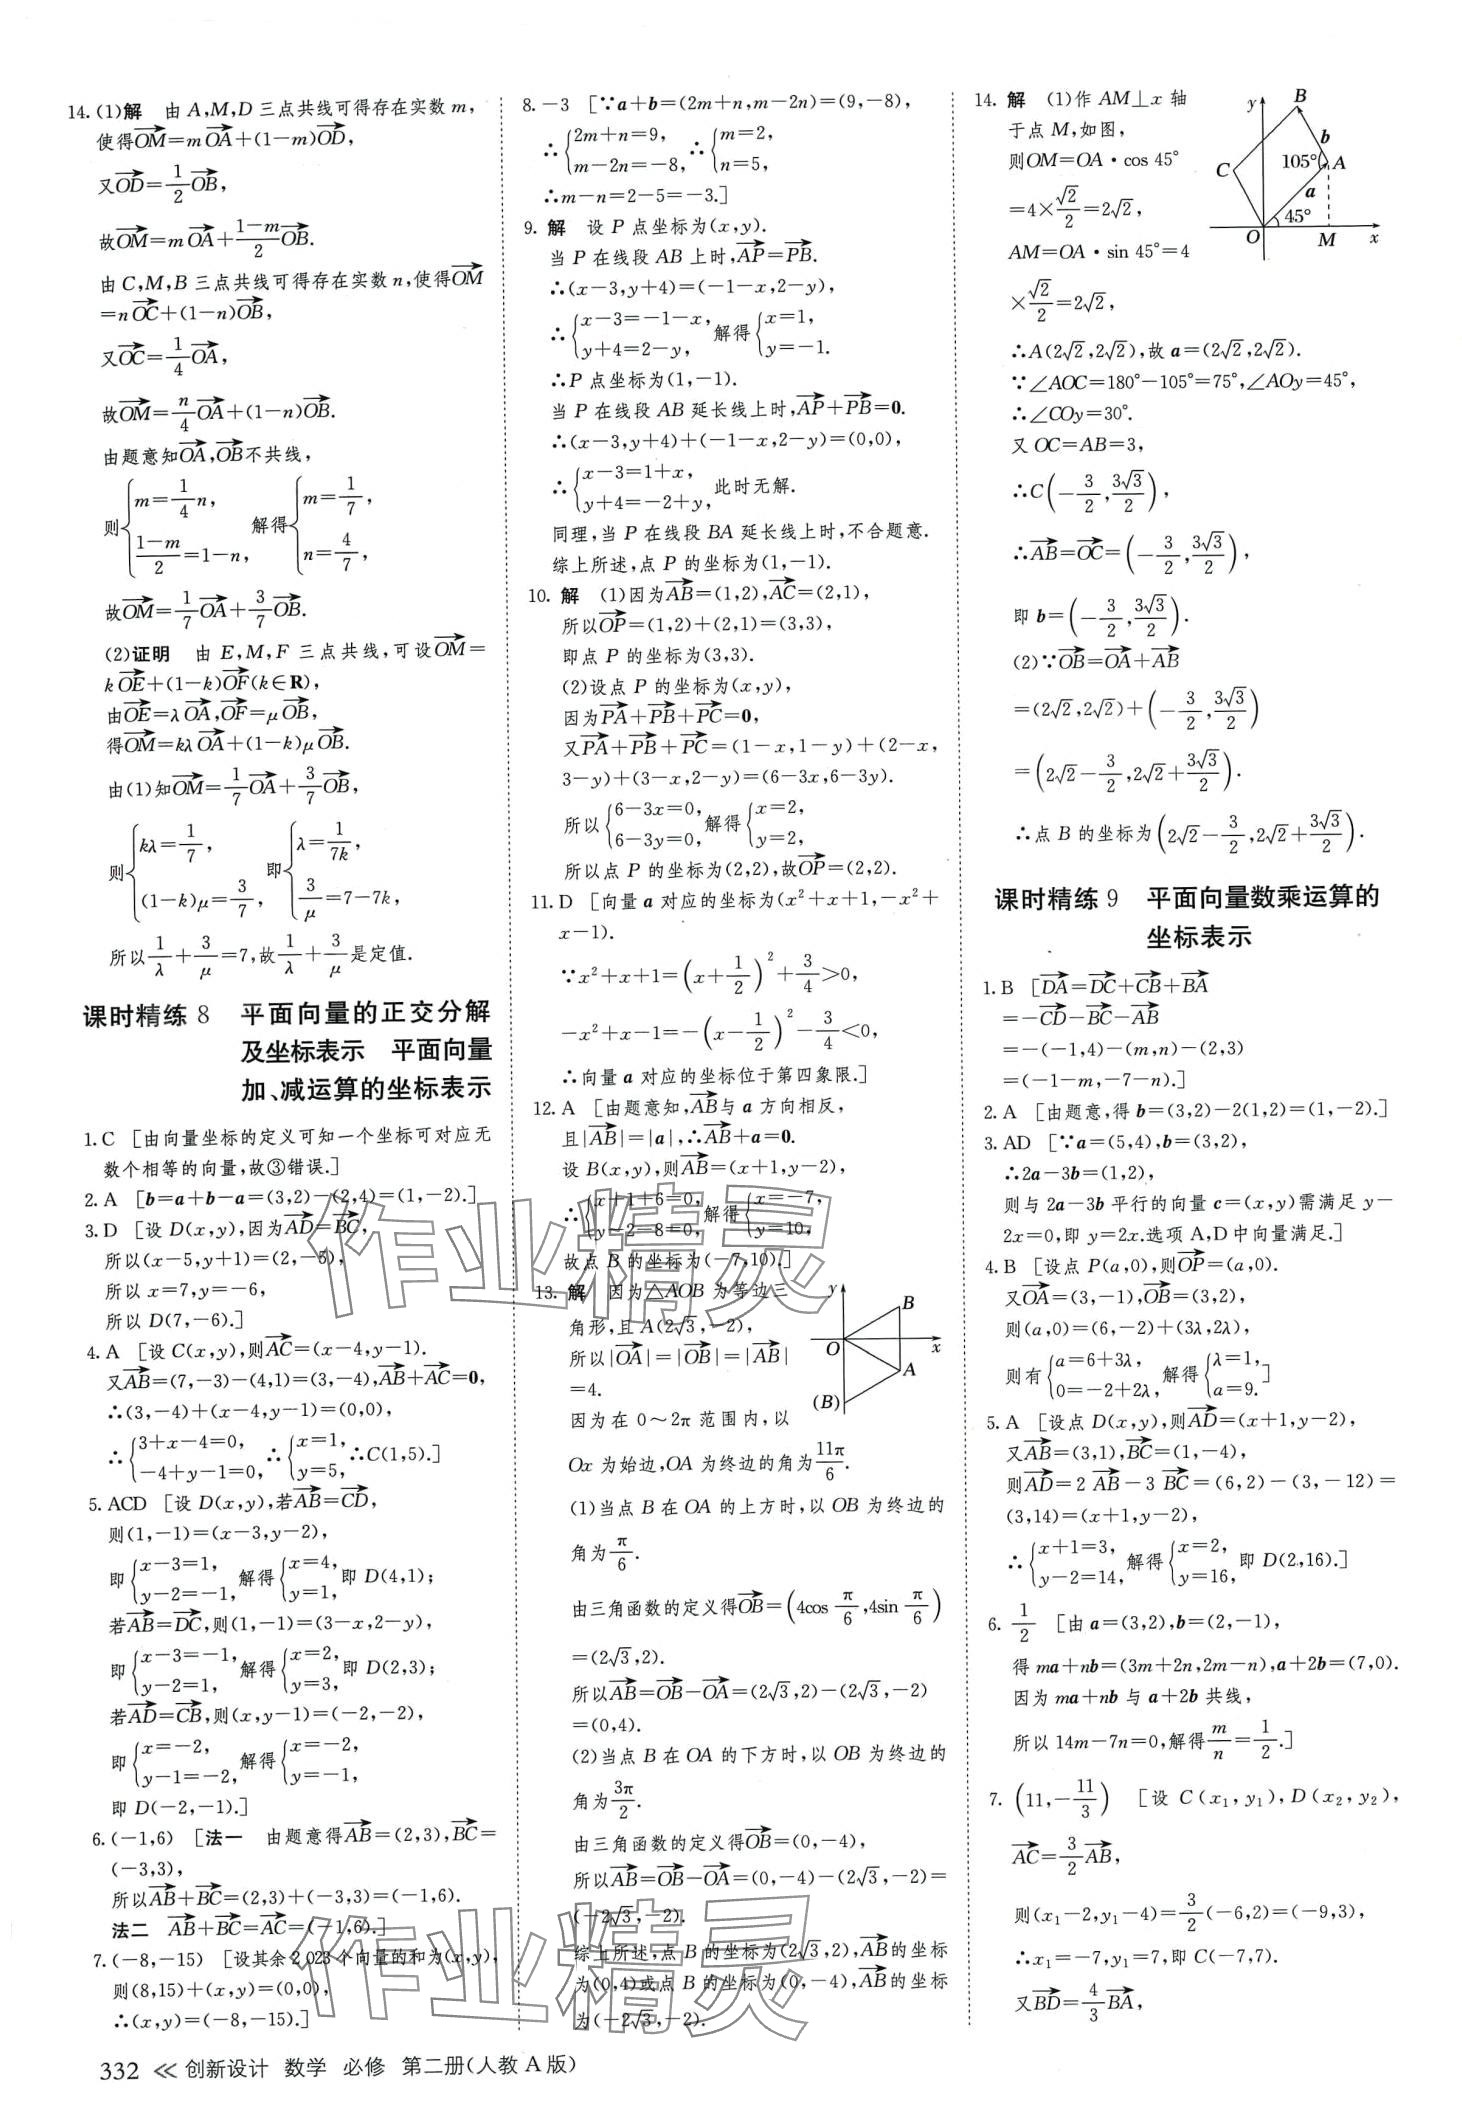 14. (1)解 由 A,M,D 三点共线可得存在实数 m,
使得$\overrightarrow{OM}=m\overrightarrow{OA}+(1-m)\overrightarrow{OD}$,
又$\overrightarrow{OD}=\frac{1}{2}\overrightarrow{OB}$,
故$\overrightarrow{OM}=m\overrightarrow{OA}+\frac{1-m}{2}\overrightarrow{OB}$.
由 C,M,B 三点共线可得存在实数 n,使得$\overrightarrow{OM}$
$=n\overrightarrow{OC}+(1-n)\overrightarrow{OB}$,
又$\overrightarrow{OC}=\frac{1}{4}\overrightarrow{OA}$,
故$\overrightarrow{OM}=\frac{n}{4}\overrightarrow{OA}+(1-n)\overrightarrow{OB}$.
由题意知$\overrightarrow{OA},\overrightarrow{OB}$不共线,
则$\begin{cases}m=\frac{1}{4}n,\\\frac{1-m}{2}=1-n,\end{cases}$解得$\begin{cases}m=\frac{1}{7},\\n=\frac{4}{7},\end{cases}$
故$\overrightarrow{OM}=\frac{1}{7}\overrightarrow{OA}+\frac{3}{7}\overrightarrow{OB}$.
(2)证明 由 E,M,F 三点共线,可设$\overrightarrow{OM}=$
$k\overrightarrow{OE}+(1-k)\overrightarrow{OF}(k\in\mathbf{R})$,
由$\overrightarrow{OE}=\lambda\overrightarrow{OA},\overrightarrow{OF}=\mu\overrightarrow{OB}$,
得$\overrightarrow{OM}=k\lambda\overrightarrow{OA}+(1-k)\mu\overrightarrow{OB}$.
由(1)知$\overrightarrow{OM}=\frac{1}{7}\overrightarrow{OA}+\frac{3}{7}\overrightarrow{OB}$,
则$\begin{cases}k\lambda=\frac{1}{7},\\(1-k)\mu=\frac{3}{7},\end{cases}$即$\begin{cases}\lambda=\frac{1}{7k},\\\frac{3}{\mu}=7-7k,\end{cases}$
所以$\frac{1}{\lambda}+\frac{3}{\mu}=7$,故$\frac{1}{\lambda}+\frac{3}{\mu}$是定值.
课时精练 8 平面向量的正交分解
及坐标表示 平面向量
加、减运算的坐标表示
1. C [由向量坐标的定义可知一个坐标可对应无
数个相等的向量,故③错误.]
2. A [b=a+b-a=(3,2)-(2,4)=(1,-2).]
3. D [设 D(x,y),因为$\overrightarrow{AD}=\overrightarrow{BC}$,
所以(x-5,y+1)=(2,-5),
所以 x=7,y=-6,
所以 D(7,-6).]
4. A [设 C(x,y),则$\overrightarrow{AC}$=(x-4,y-1).
又$\overrightarrow{AB}$=(7,-3)-(4,1)=(3,-4),$\overrightarrow{AB}+\overrightarrow{AC}=\mathbf{0}$,
∴(3,-4)+(x-4,y-1)=(0,0),
∴$\begin{cases}3+x-4=0,\\-4+y-1=0,\end{cases}$∴$\begin{cases}x=1,\\y=5,\end{cases}$∴C(1,5).]
5. ACD [设 D(x,y),若$\overrightarrow{AB}=\overrightarrow{CD}$,
则(1,-1)=(x-3,y-2),
即$\begin{cases}x-3=1,\\y-2=-1,\end{cases}$解得$\begin{cases}x=4,\\y=1,\end{cases}$即 D(4,1);
若$\overrightarrow{AB}=\overrightarrow{DC}$,则(1,-1)=(3-x,2-y),
即$\begin{cases}x-3=-1,\\y-2=1,\end{cases}$解得$\begin{cases}x=2,\\y=3,\end{cases}$即 D(2,3);
若$\overrightarrow{AD}=\overrightarrow{CB}$,则(x,y-1)=(-2,-2),
即$\begin{cases}x=-2,\\y-1=-2,\end{cases}$解得$\begin{cases}x=-2,\\y=-1,\end{cases}$
即 D(-2,-1).]
6. (-1,6) [法一 由题意得$\overrightarrow{AB}$=(2,3),$\overrightarrow{BC}$=
(-3,3),
所以$\overrightarrow{AB}+\overrightarrow{BC}$=(2,3)+(-3,3)=(-1,6).
法二 $\overrightarrow{AB}+\overrightarrow{BC}=\overrightarrow{AC}$=(-1,6).]
7. (-8,-15) [设其余 2 023 个向量的和为(x,y),
则(8,15)+(x,y)=(0,0),
∴(x,y)=(-8,-15).]
8. -3 [∵a+b=(2m+n,m-2n)=(9,-8),
∴$\begin{cases}2m+n=9,\\m-2n=-8,\end{cases}$∴$\begin{cases}m=2,\\n=5,\end{cases}$
∴m-n=2-5=-3.]
9. 解 设 P 点坐标为(x,y).
当 P 在线段 AB 上时,$\overrightarrow{AP}=\overrightarrow{PB}$.
∴(x-3,y+4)=(-1-x,2-y),
∴$\begin{cases}x-3=-1-x,\\y+4=2-y,\end{cases}$解得$\begin{cases}x=1,\\y=-1.\end{cases}$
∴P 点坐标为(1,-1).
当 P 在线段 AB 延长线上时,$\overrightarrow{AP}+\overrightarrow{PB}=\mathbf{0}$.
∴(x-3,y+4)+(-1-x,2-y)=(0,0),
∴$\begin{cases}x-3=1+x,\\y+4=-2+y,\end{cases}$此时无解.
同理,当 P 在线段 BA 延长线上时,不合题意.
综上所述,点 P 的坐标为(1,-1).
10. 解 (1)因为$\overrightarrow{AB}$=(1,2),$\overrightarrow{AC}$=(2,1),
所以$\overrightarrow{OP}$=(1,2)+(2,1)=(3,3),
即点 P 的坐标为(3,3).
(2)设点 P 的坐标为(x,y),
因为$\overrightarrow{PA}+\overrightarrow{PB}+\overrightarrow{PC}=\mathbf{0}$,
又$\overrightarrow{PA}+\overrightarrow{PB}+\overrightarrow{PC}$=(1-x,1-y)+(2-x,
3-y)+(3-x,2-y)=(6-3x,6-3y).
所以$\begin{cases}6-3x=0,\\6-3y=0,\end{cases}$解得$\begin{cases}x=2,\\y=2,\end{cases}$
所以点 P 的坐标为(2,2),故$\overrightarrow{OP}$=(2,2).
11. D [向量 a 对应的坐标为($x^2+x+1,-x^2+$
$x-1$).
∵$x^2+x+1=\left(x+\frac{1}{2}\right)^2+\frac{3}{4}>0$,
$-x^2+x-1=-\left(x-\frac{1}{2}\right)^2-\frac{3}{4}<0$,
∴向量 a 对应的坐标位于第四象限.]
12. A [由题意知,$\overrightarrow{AB}$与 a 方向相反,
且$|\overrightarrow{AB}|=|a|$,∴$\overrightarrow{AB}+a=\mathbf{0}$.
设 B(x,y),则$\overrightarrow{AB}$=(x+1,y-2),
∴$\begin{cases}x+1+6=0,\\y-2-8=0,\end{cases}$解得$\begin{cases}x=-7,\\y=10,\end{cases}$
故点 B 的坐标为(-7,10).]
13. 解 因为△AOB 为等边三
角形,且 A($2\sqrt{3}$,-2),
所以$|\overrightarrow{OA}|=|\overrightarrow{OB}|=|\overrightarrow{AB}|$
=4.
因为在 0～2π 范围内,以
Ox 为始边,OA 为终边的角为$\frac{11\pi}{6}$.
y
B
O
x
A
(B)
(1)当点 B 在 OA 的上方时,以 OB 为终边的
角为$\frac{\pi}{6}$.
由三角函数的定义得$\overrightarrow{OB}=\left(4\cos\frac{\pi}{6},4\sin\frac{\pi}{6}\right)$
=($2\sqrt{3}$,2).
所以$\overrightarrow{AB}=\overrightarrow{OB}-\overrightarrow{OA}$=($2\sqrt{3}$,2)-($2\sqrt{3}$,-2)
=(0,4).
(2)当点 B 在 OA 的下方时,以 OB 为终边的
角为$\frac{3\pi}{2}$.
由三角函数的定义得$\overrightarrow{OB}$=(0,-4),
所以$\overrightarrow{AB}=\overrightarrow{OB}-\overrightarrow{OA}$=(0,-4)-($2\sqrt{3}$,-2)=
($-2\sqrt{3}$,-2).
综上所述,点 B 的坐标为($2\sqrt{3}$,2),$\overrightarrow{AB}$的坐标
为(0,4)或点 B 的坐标为(0,-4),$\overrightarrow{AB}$的坐标
为($-2\sqrt{3}$,-2).
14. 解 (1)作 AM⊥x 轴
于点 M,如图,
则 OM=OA·cos 45°
$=4\times\frac{\sqrt{2}}{2}=2\sqrt{2}$,
AM=OA·sin 45°=4
$\times\frac{\sqrt{2}}{2}=2\sqrt{2}$,
y
B
b
105°
A
C
a
45°
O
M
x
∴A($2\sqrt{2},2\sqrt{2}$),故 a=($2\sqrt{2},2\sqrt{2}$).
∵∠AOC=180°-105°=75°,∠AOy=45°,
∴∠COy=30°.
又 OC=AB=3,
∴$C\left(-\frac{3}{2},\frac{3\sqrt{3}}{2}\right)$,
∴$\overrightarrow{AB}=\overrightarrow{OC}=\left(-\frac{3}{2},\frac{3\sqrt{3}}{2}\right)$,
即 $b=\left(-\frac{3}{2},\frac{3\sqrt{3}}{2}\right)$.
(2)∵$\overrightarrow{OB}=\overrightarrow{OA}+\overrightarrow{AB}$
$=(2\sqrt{2},2\sqrt{2})+\left(-\frac{3}{2},\frac{3\sqrt{3}}{2}\right)$
$=\left(2\sqrt{2}-\frac{3}{2},2\sqrt{2}+\frac{3\sqrt{3}}{2}\right)$.
∴点 B 的坐标为$\left(2\sqrt{2}-\frac{3}{2},2\sqrt{2}+\frac{3\sqrt{3}}{2}\right)$.
课时精练 9 平面向量数乘运算的
坐标表示
1. B [$\overrightarrow{DA}=\overrightarrow{DC}+\overrightarrow{CB}+\overrightarrow{BA}$
$=-\overrightarrow{CD}-\overrightarrow{BC}-\overrightarrow{AB}$
=-(-1,4)-(m,n)-(2,3)
=(-1-m,-7-n).]
2. A [由题意,得 b=(3,2)-2(1,2)=(1,-2).]
3. AD [∵a=(5,4),b=(3,2),
∴2a-3b=(1,2),
则与 2a-3b 平行的向量 c=(x,y)需满足 y-
2x=0,即 y=2x.选项 A,D 中向量满足.]
4. B [设点 P(a,0),则$\overrightarrow{OP}$=(a,0).
又$\overrightarrow{OA}$=(3,-1),$\overrightarrow{OB}$=(3,2),
则(a,0)=(6,-2)+(3λ,2λ),
则有$\begin{cases}a=6+3\lambda,\\0=-2+2\lambda,\end{cases}$解得$\begin{cases}\lambda=1,\\a=9.\end{cases}$]
5. A [设点 D(x,y),则$\overrightarrow{AD}$=(x+1,y-2),
又$\overrightarrow{AB}$=(3,1),$\overrightarrow{BC}$=(1,-4),
则$\overrightarrow{AD}=2\overrightarrow{AB}-3\overrightarrow{BC}$=(6,2)-(3,-12)=
(3,14)=(x+1,y-2),
∴$\begin{cases}x+1=3,\\y-2=14,\end{cases}$解得$\begin{cases}x=2,\\y=16,\end{cases}$即 D(2,16).]
6. $\frac{1}{2}$ [由 a=(3,2),b=(2,-1),
得 ma+nb=(3m+2n,2m-n),a+2b=(7,0).
因为 ma+nb 与 a+2b 共线,
所以 14m-7n=0,解得$\frac{m}{n}=\frac{1}{2}$.]
7. $\left(11,-\frac{11}{3}\right)$ [设 C($x_1,y_1$),D($x_2,y_2$),
$\overrightarrow{AC}=\frac{3}{2}\overrightarrow{AB}$,
则($x_1-2,y_1-4$)=$\frac{3}{2}$(-6,2)=(-9,3),
∴$x_1=-7,y_1=7$,即 C(-7,7).
又$\overrightarrow{BD}=\frac{4}{3}\overrightarrow{BA}$,
作业精灵
作业精灵
332 ≪ 创新设计 数学 必修 第二册(人教 A 版)